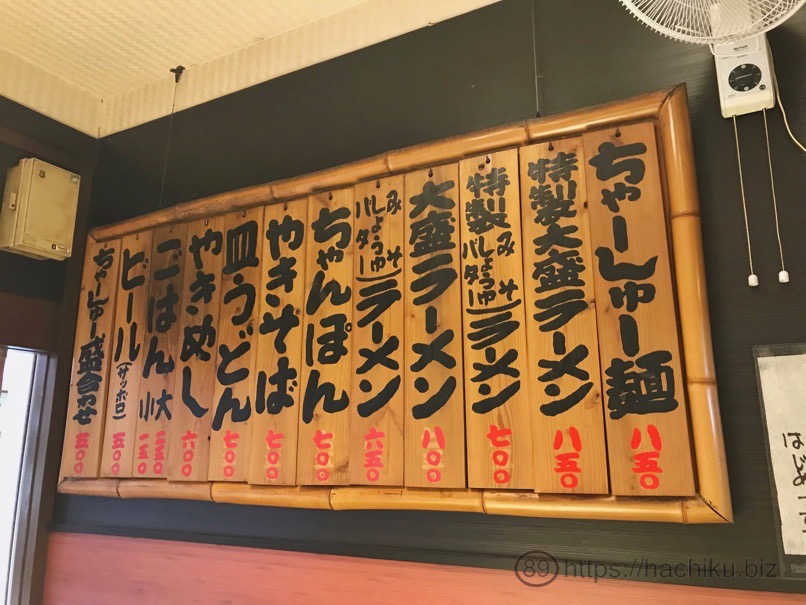 ちゃーしゅー麺 八五〇
特製大盛ラーメン 八五〇
特製(みそ しょうゆ バター)ラーメン 七〇〇
大盛ラーメン 八〇〇
(みそ しょうゆ バター)ラーメン 六五〇
ちゃんぽん 七〇〇
やきそば 七〇〇
皿うどん 七〇〇
やきめし 六〇〇
ごはん 大 二五〇
小 一五〇
ビール(サッポロ) 五〇〇
ちゃーしゅー盛合わせ 五〇〇
はじめ
89 https://hachiku.biz